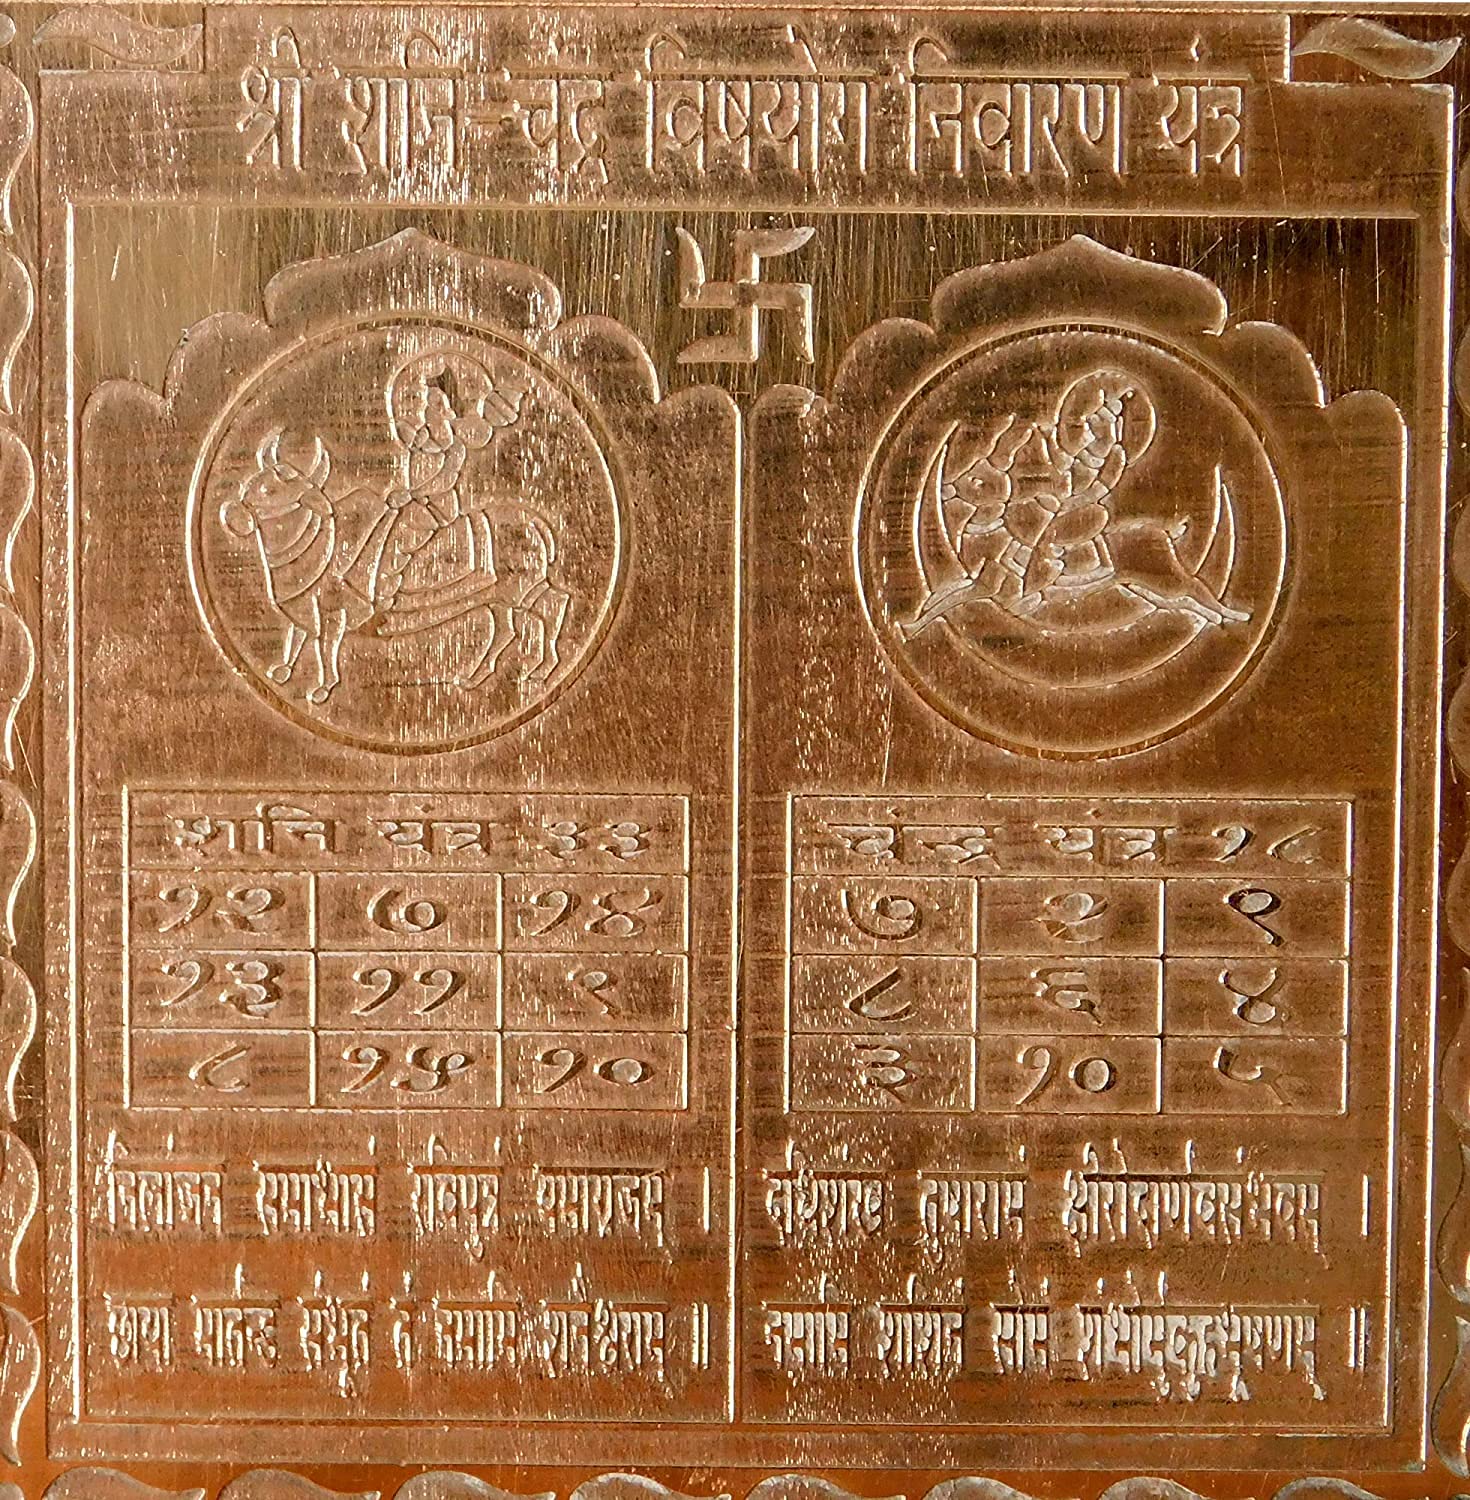 श्री शनि-चंद्र विषयोग निवारण यंत्र
शनि यंत्र ३३
१२ ७ १४
१३ ११ ९
८ १५ १०
निलांजन समाभासं रविपुत्रं यमाग्रजम् ।
छाया मार्तण्ड संभूतं तं नमामि शनैश्चराम् ॥
चंन्द्र यंत्र १८
७ २ ९
८ ६ ४
३ १० ५
दधिशंख तुषाराभं क्षीरोदार्णवसंभवम् ।
नमामि शशिनं सोमं शंभोर्मुकुटभूषणम् ॥